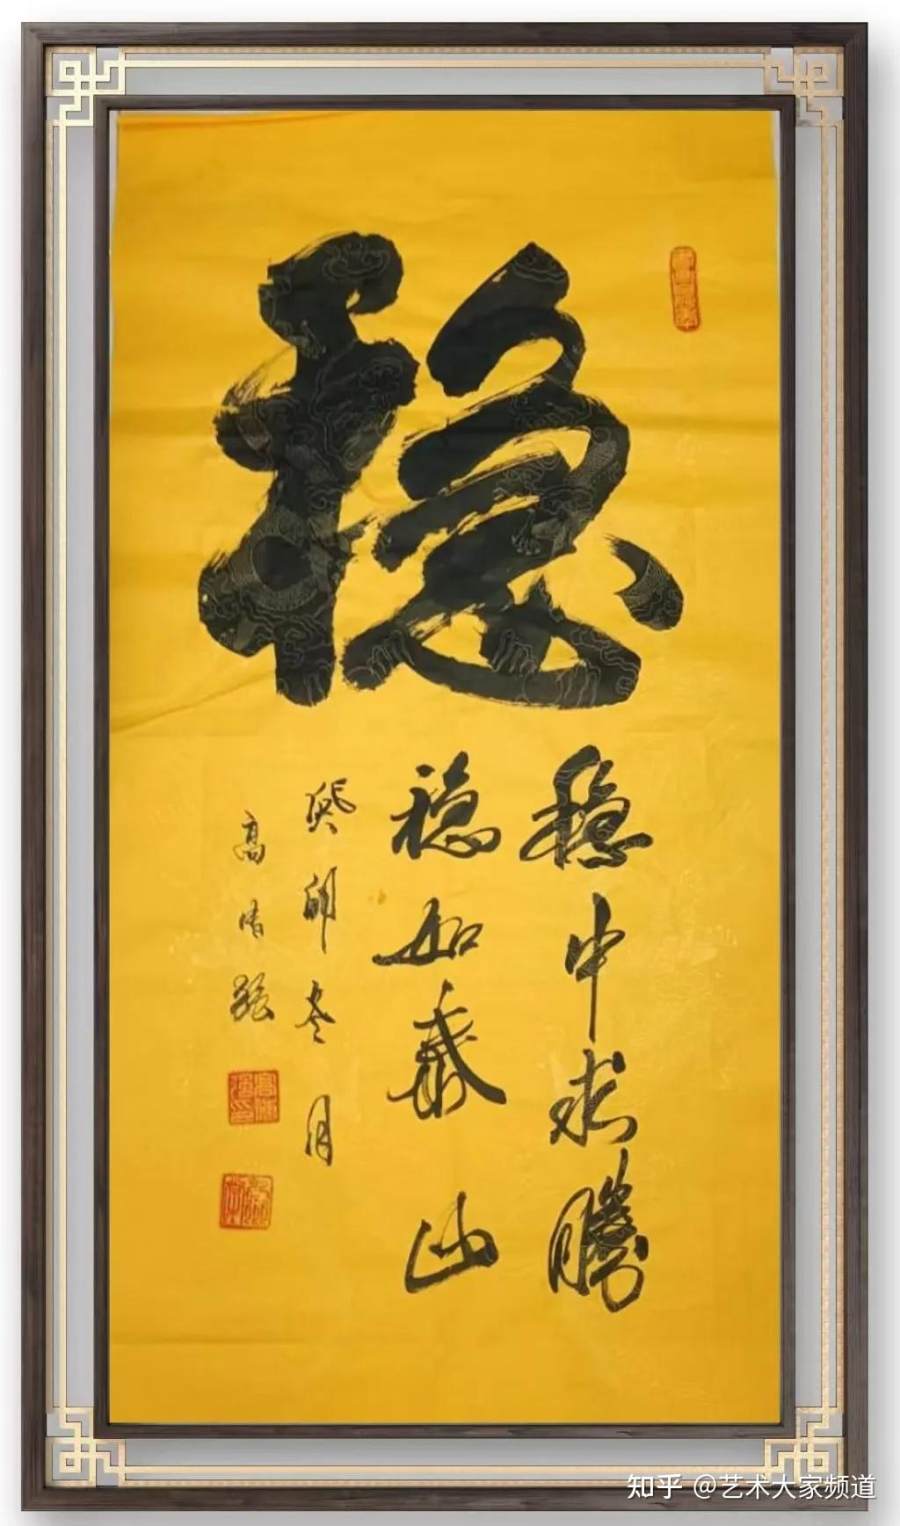 稳
稳中求勝
稳如泰山
癸卯冬月
高清
知乎 @艺术大家频道